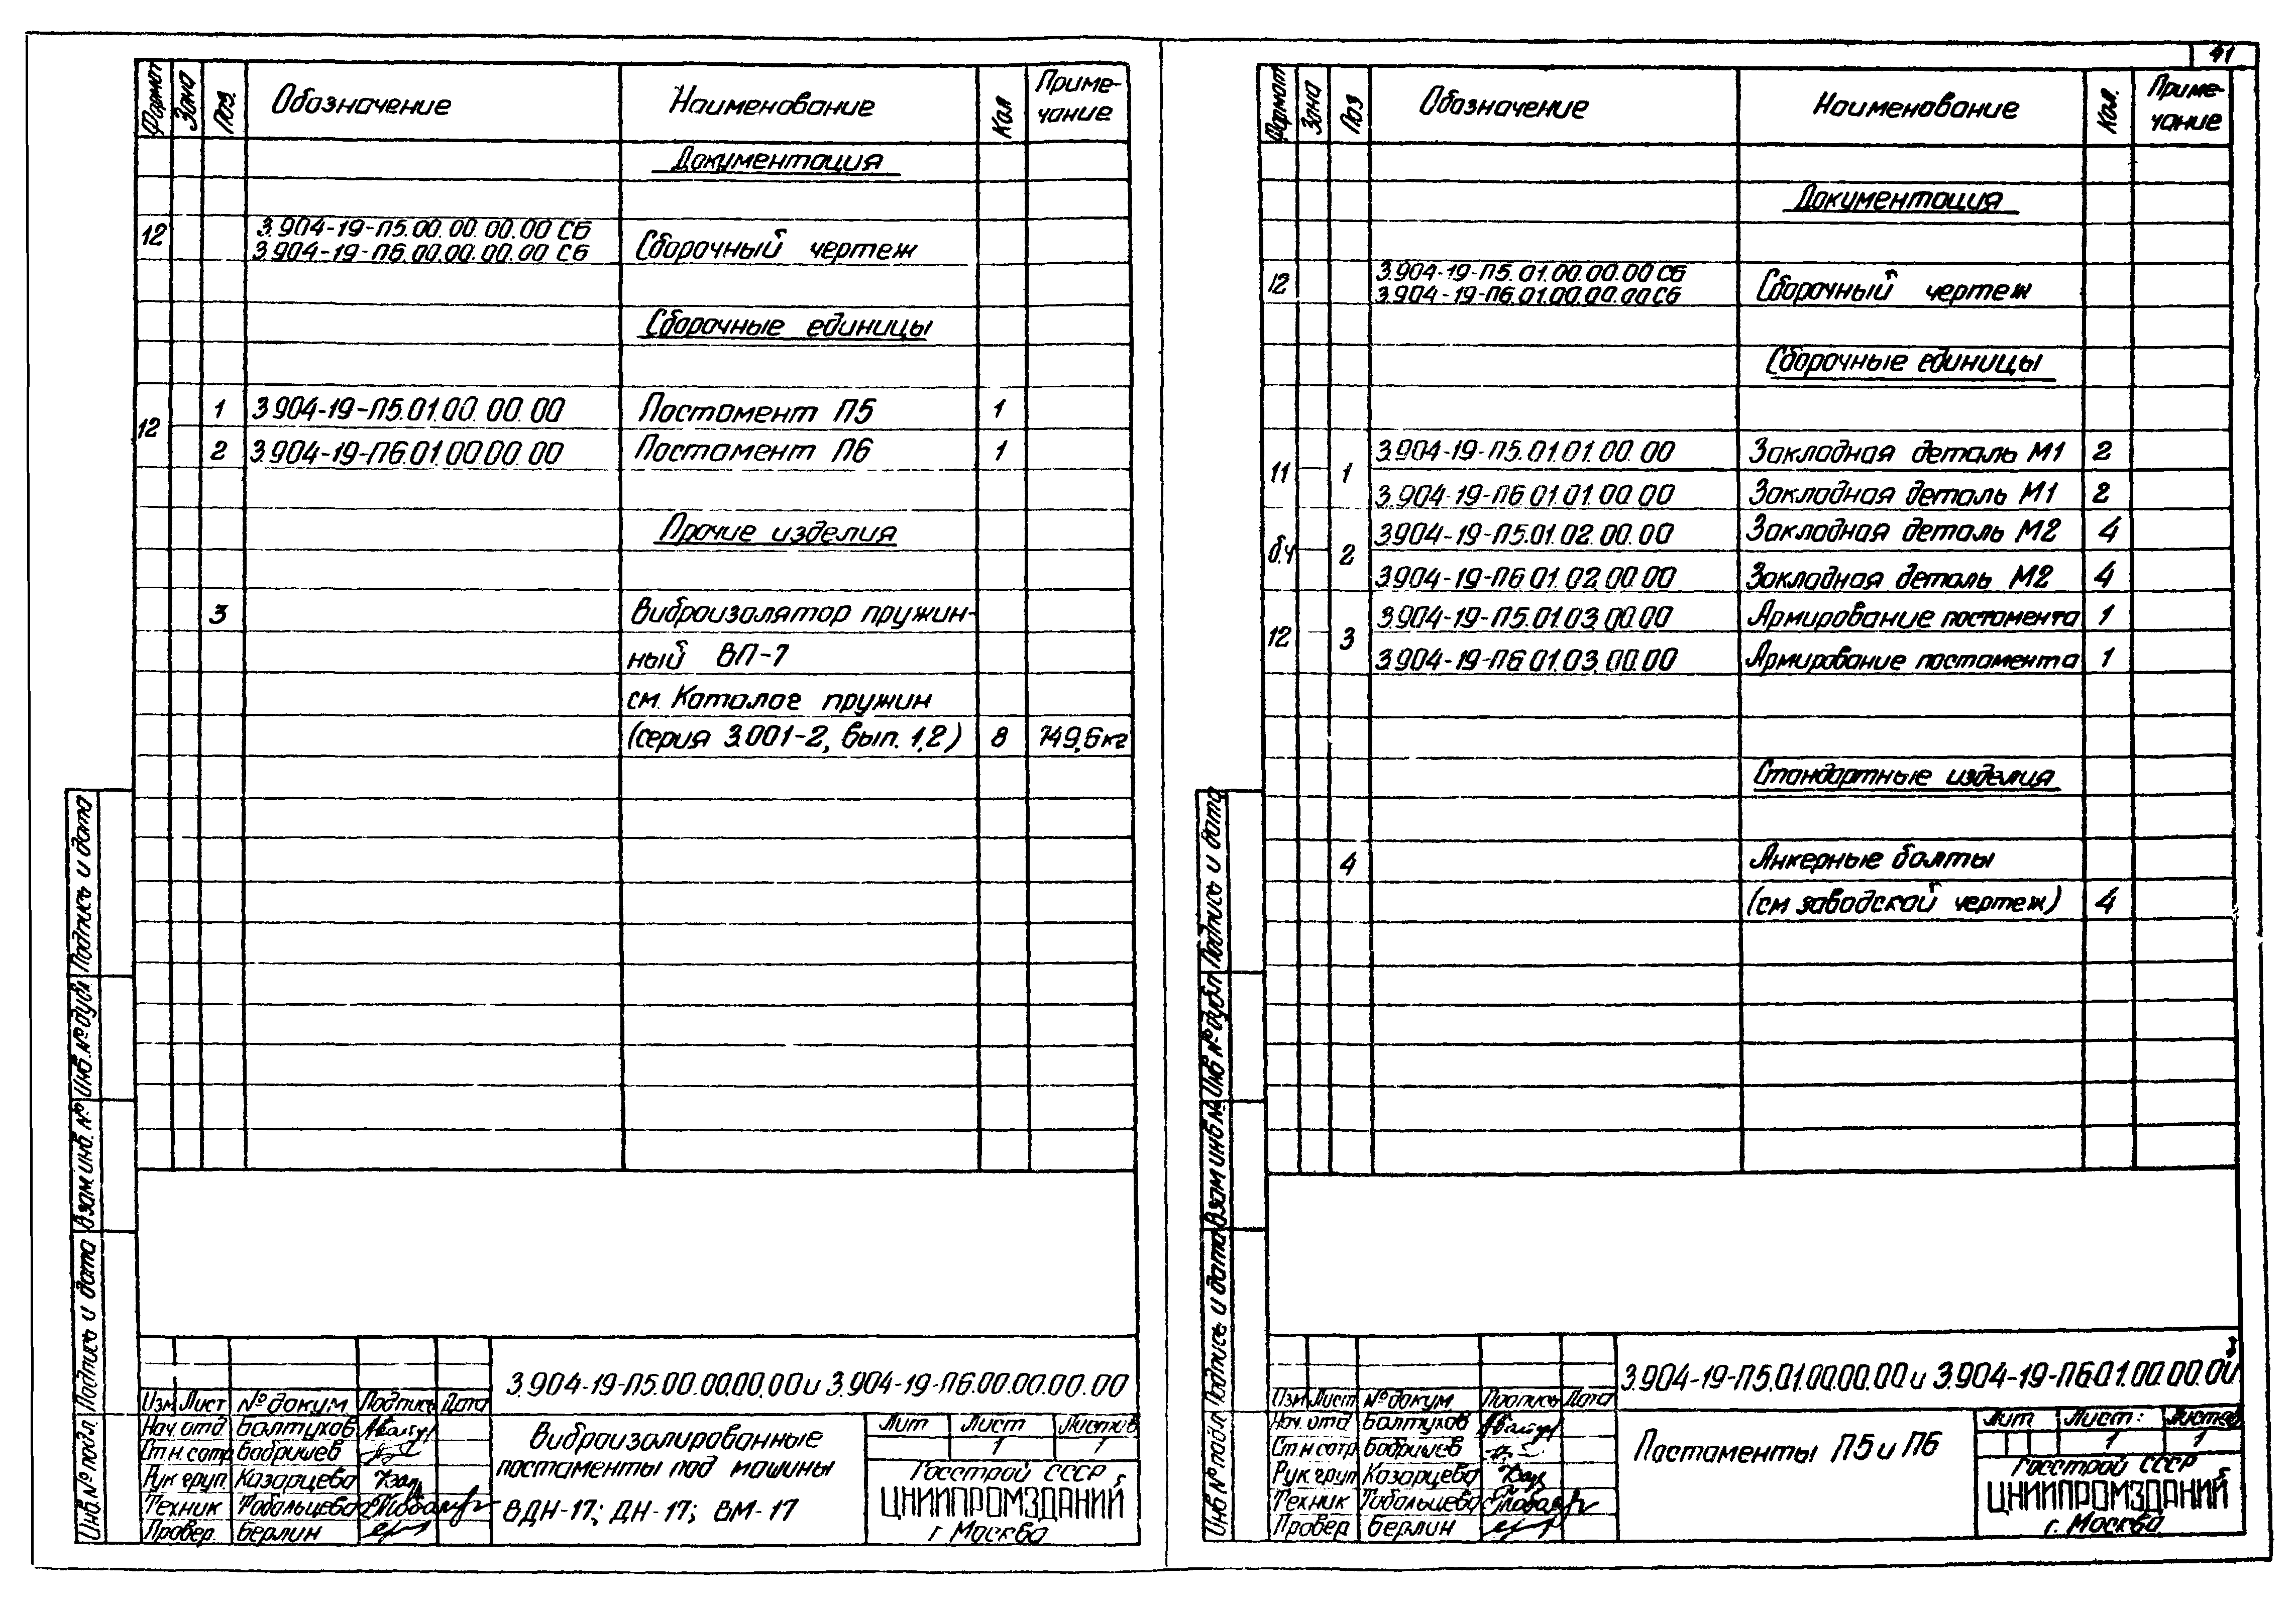 41
Формат Зона Поз. Обозначение Наименование Кол Приме-
чание
Документация
12 3.904-19-П5.00.00.00.00 СБ
3.904-19-П6.00.00.00.00 СБ Сборочный чертеж
Сборочные единицы
12 1 3.904-19-П5.01.00.00.00 Постамент П5 1
2 3.904-19-П6.01.00.00.00 Постамент П6 1
Прочие изделия
3 Виброизолятор пружин-
ный ВП-7
см. Каталог пружин
(серия 3.001-2, вып. 1,2) 8 749,6кг
Инв № подл. Подпись и дата Взам инв. № Инв. № дубл Подпись и дата
3.904-19-П5.00.00.00.00 и 3.904-19-П6.00.00.00.00
Изм Лист № докум. Подпись Дата
Нач. отд Балтухов
Ст н. сотр Бабришев
Рук груп. Казарцева
Техник Тобольцева
Провер. Берлин
Виброизолированные
постаменты под машины
ВДН-17; ДН-17; ВМ-17
Лит Лист Листов
1 1
Госстрой СССР
ЦНИИПРОМЗДАНИЙ
г Москва
Формат Зона Поз Обозначение Наименование Кол. Приме-
чание
Документация
12 3.904-19-П5.01.00.00.00 СБ
3.904-19-П6.01.00.00.00 СБ Сборочный чертеж
Сборочные единицы
11 1 3.904-19-П5.01.01.00.00 Закладная деталь М1 2
3.904-19-П6.01.01.00.00 Закладная деталь М1 2
б.ч 2 3.904-19-П5.01.02.00.00 Закладная деталь М2 4
3.904-19-П6.01.02.00.00 Закладная деталь М2 4
12 3 3.904-19-П5.01.03.00.00 Армирование постамента 1
3.904-19-П6.01.03.00.00 Армирование постамента 1
Стандартные изделия
4 Анкерные болты
(см заводской чертеж) 4
Инв № подл Подпись и дата Взам инв № Инв № дубл Подпись и дата
3.904-19-П5.01.00.00.00 и 3.904-19-П6.01.00.00.00
Изм Лист № докум Подпись Дата
Нач. отд Балтухов
Ст н сотр Бабришев
Рук груп Казарцева
Техник Тобольцева
Провер Берлин
Постаменты П5 и П6
Лит Лист: Листов
1 1
Госстрой СССР
ЦНИИПРОМЗДАНИЙ
г. Москва